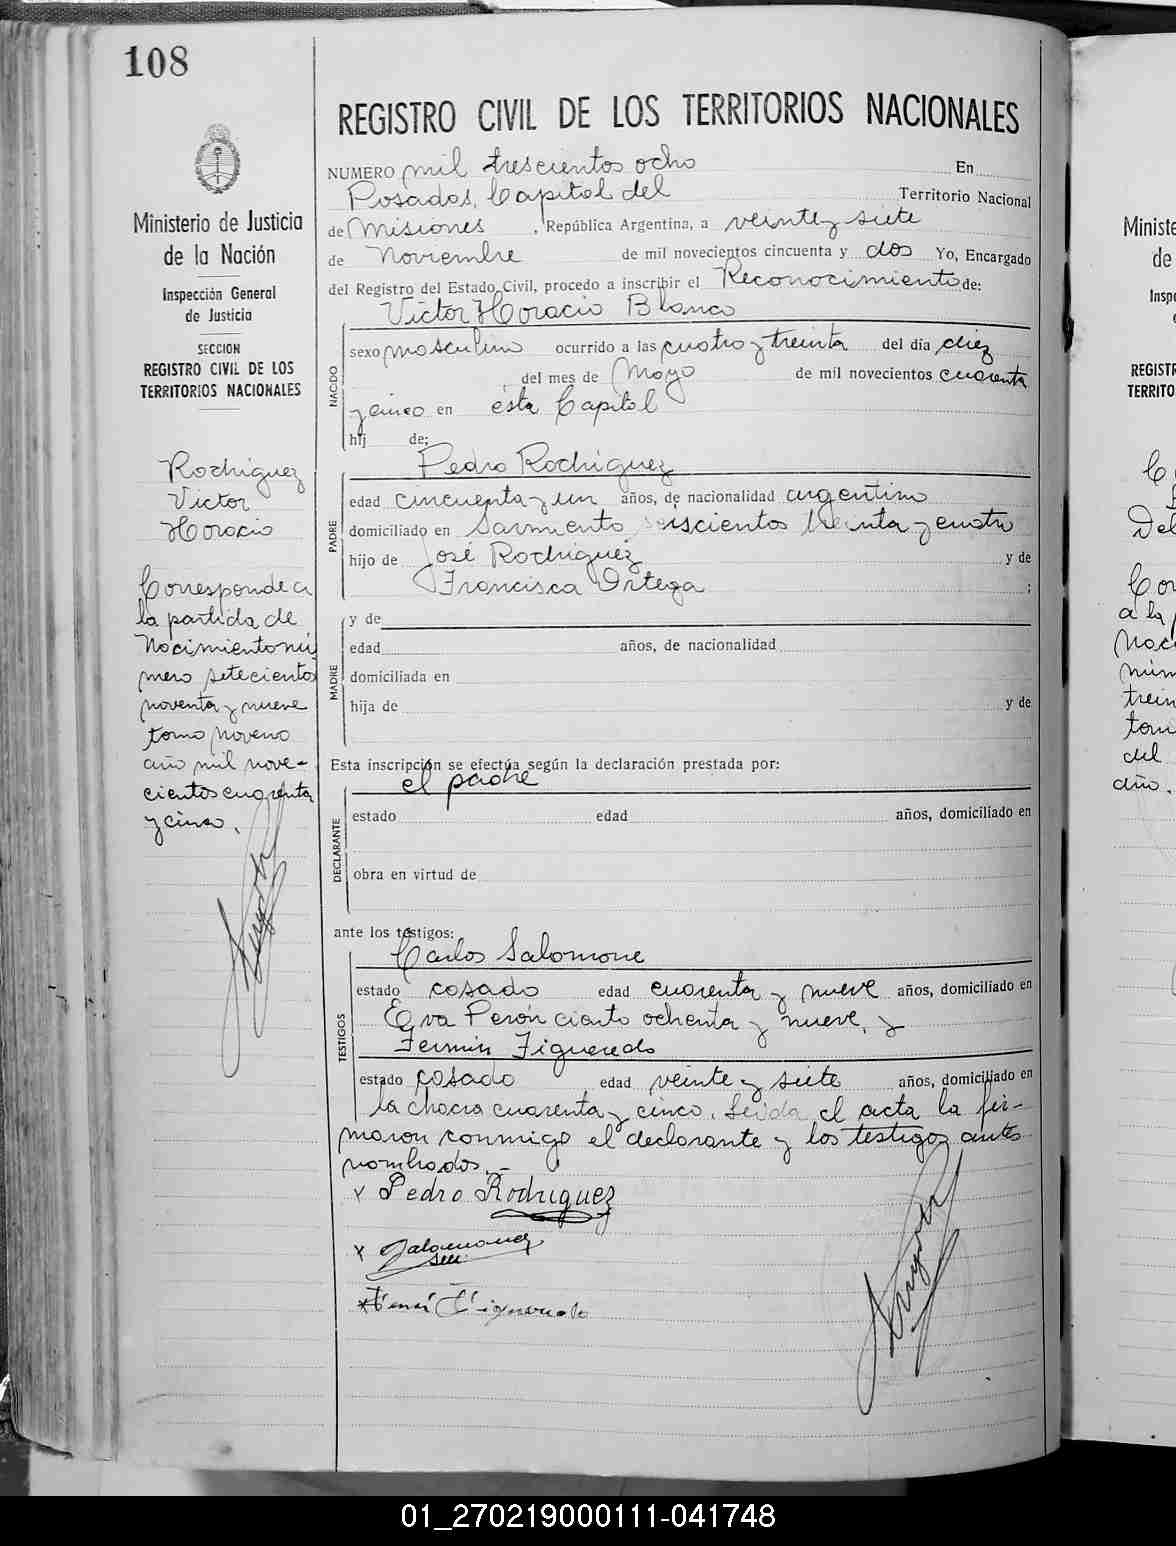 108
REGISTRO CIVIL DE LOS TERRITORIOS NACIONALES
NUMERO mil trescientos ocho En
Posadas, Capital del Territorio Nacional
de Misiones, República Argentina, a veinte y siete
de Noviembre de mil novecientos cincuenta y dos Yo, Encargado
del Registro del Estado Civil, procedo a inscribir el Reconocimiento de:
Víctor Horacio Blanco
NACIDO
sexo masculino ocurrido a las cuatro y treinta del día diez
, del mes de Mayo de mil novecientos cuarenta
y cinco en esta Capital
hij de:
Pedro Rodriguez
PADRE
edad cincuenta y un años, de nacionalidad argentino
domiciliado en Sarmiento seiscientos treinta y cuatro
hijo de José Rodriguez y de
Francisca Ortega ;
MADRE
y de
edad años, de nacionalidad
domiciliada en
hija de y de
Esta inscripción se efectúa según la declaración prestada por:
el padre
DECLARANTE
estado edad años, domiciliado en
obra en virtud de
ante los testigos:
Carlos Salomone
TESTIGOS
estado casado edad cuarenta y nueve años, domiciliado en
Eva Perón ciento ochenta y nueve, y
Fermín Figueredo
estado casado edad veinte y siete años, domiciliado en
la chacra cuarenta y cinco. Leída el acta la fir-
maron conmigo el declarante y los testigos antes
nombrados.-
x Pedro Rodriguez
x
x Figueredo
Ministerio de Justicia
de la Nación
Inspección General
de Justicia
SECCION
REGISTRO CIVIL DE LOS
TERRITORIOS NACIONALES
Rodriguez
Victor
Horacio
Corresponde a
la partida de
Nacimiento nú
mero setecientos
noventa y nueve
tomo noveno
año mil nove-
cientos cuarenta
y cinco.
Ministe
de
Insp
REGISTR
TERRITO
Del
a la
Naci
núm
trein
tom
del
año.
01_270219000111-041748